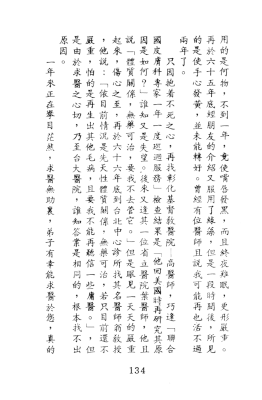 用的是何物，不到一年，竟使雪告發黑，而且終夜難眠，更形嚴重。
再於六十五年底經朋友的介紹，又服用了綠藻，但是一段時間後，所見
的是使手心發黃，並未能轉好。曾經有位醫師且說我可能再也活不過
兩年了。
只因抱著不死之心，再找彰化基督教醫院——高醫師，巧達「聯合
國皮膚科專家一年一度巡迴服務」檢查結果是「他回美國時再研究其原
因是如何？」誰知又是失望。後來又達其一位省立醫院葉醫師，他且
說「體質關係，無藥可治，要我不去管它。」但是眼見一天天的嚴重
起來，傷心之至，再於六十六年底到台北中心診所找其名醫師翁教授
，他說：「依目前情況是先天性體質關係，無藥可治，若只目前還不
嚴重，怕的是再生出其他毛病，且要我不能再聽信一些庸醫。」，但
是由於求醫之心切，乃至台大醫院，誰知答案是相同的，根本找不出
原因。
一年來正在舉目茫然，求醫無助裏，弟子有幸能求醫於您，真的
134